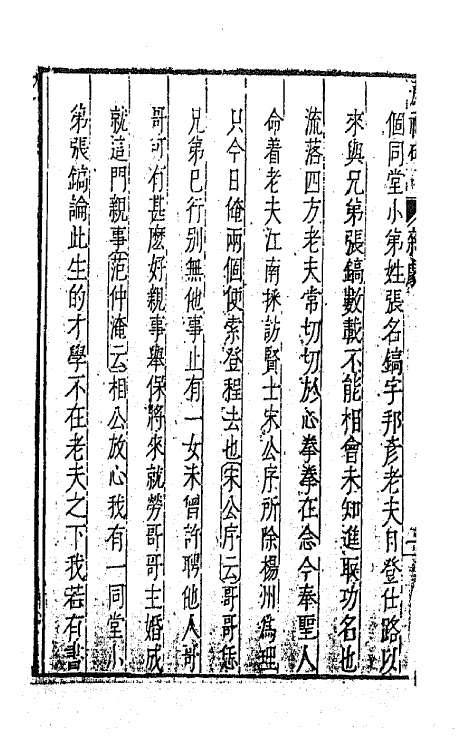 個同堂小弟姓張名鎬字邦彥老夫自登仕路以
來與兄弟張鎬數載不能相會未知進取功名也
流落四方老夫常切切於心拳拳在念今奉聖人
命着老夫江南採訪賢士宋公序所除楊州爲理
只今日俺兩個便索登程去也宋公序云哥哥您
兄弟已行別無他事止有一女未曾許聘他人哥
哥可有甚麼好親事舉保將來就勞哥哥主婚成
就這門親事范仲淹云相公放心我有一同堂小
弟張鎬論此生的才學不在老夫之下我若有書